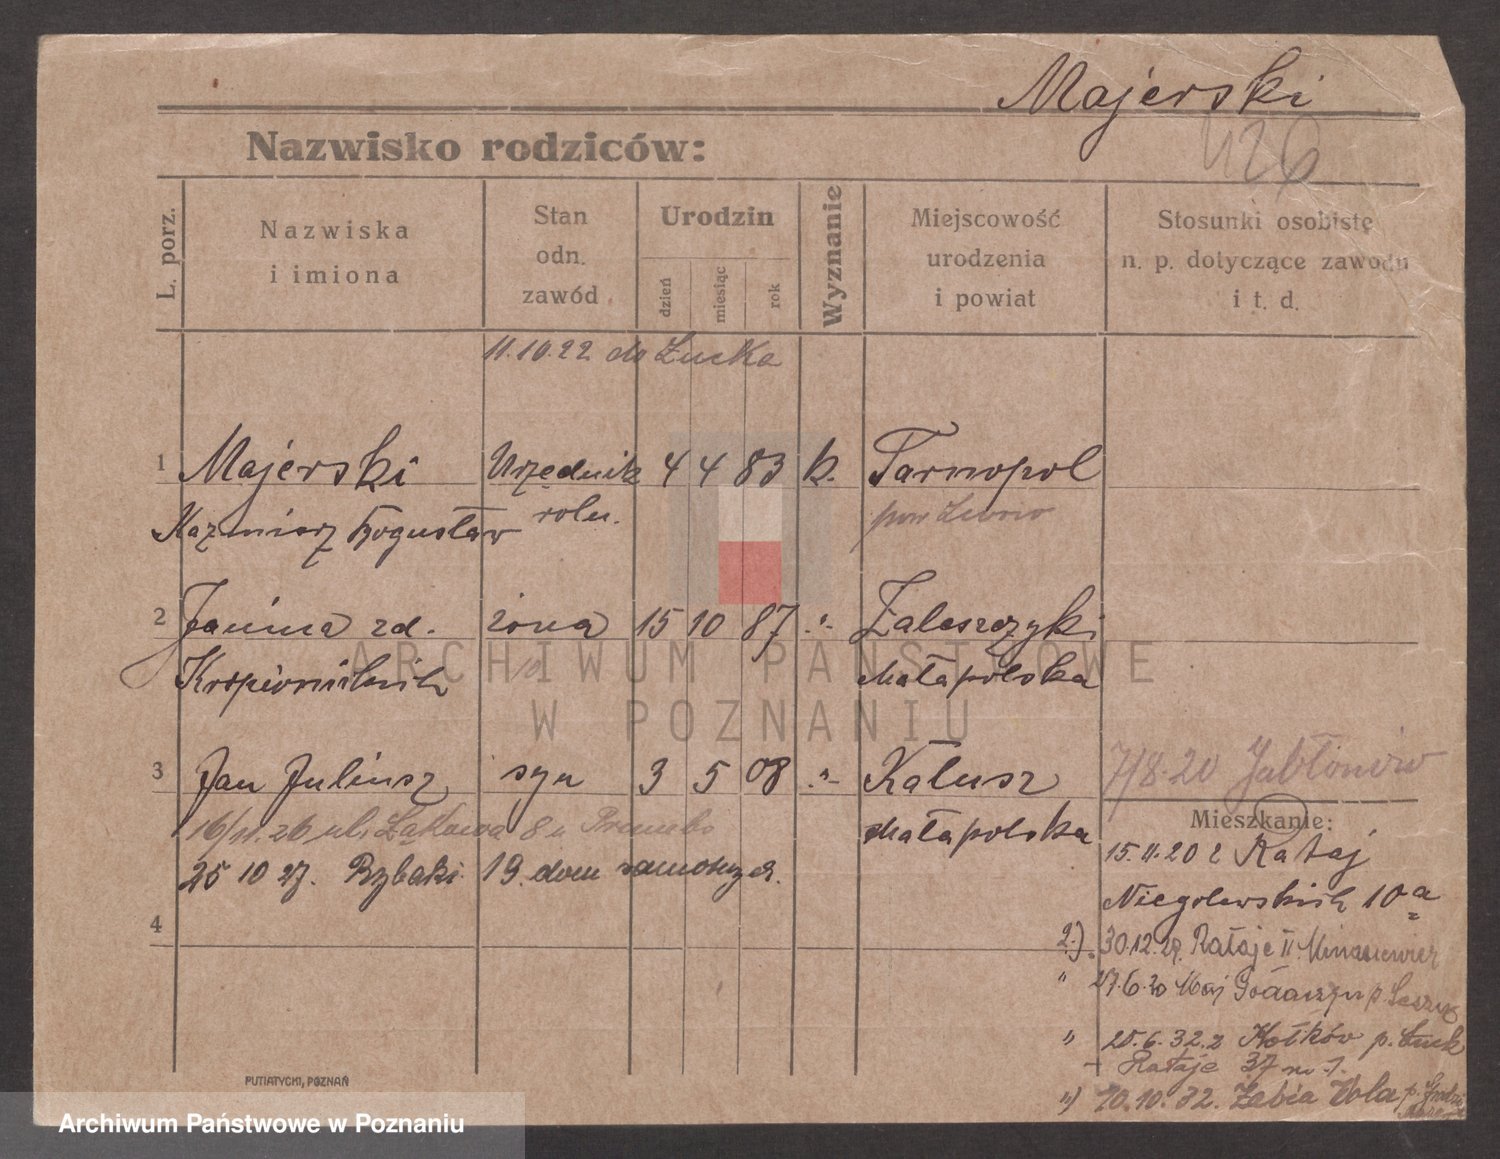 Majerski
Nazwisko rodziców:
426
L. porz.
Nazwiska
i imiona
Stan
odn.
zawód
Urodzin
dzień
miesiąc
rok
Wyznanie
Miejscowość
urodzenia
i powiat
Stosunki osobistę
n. p. dotyczące zawodu
i t. d.
11.10.22 do Łucka
1 Majerski Urzędnik 4 4 83 k. Tarnopol
Kazmierz Bogusław roln. pow
2 Janina zd. żona 15 10 87 -"- Zaleszczyki
Małapolska
3 Jan Juliusz syn 3 5 08 -"- Kałusz
7/8.20 Jabłonów
Małapolska
16/11.26 ul. Łąkowa 8 u
25 10 27. Rybaki 19. dom
4
Mieszkanie:
15.11.20 z Rataj
Niegolewskich 10a
2.) 30.12.29. Rataje II.
" 27.6.30 Maj p.
" 25.6.32. z Kołków p. Łuck
+ Rataje 37 m 1.
") 10.10.32. Żabia Wola p.
ARCHIWUM PAŃSTWOWE
W POZNANIU
PUTIATYCKI, POZNAŃ
Archiwum Państwowe w Poznaniu